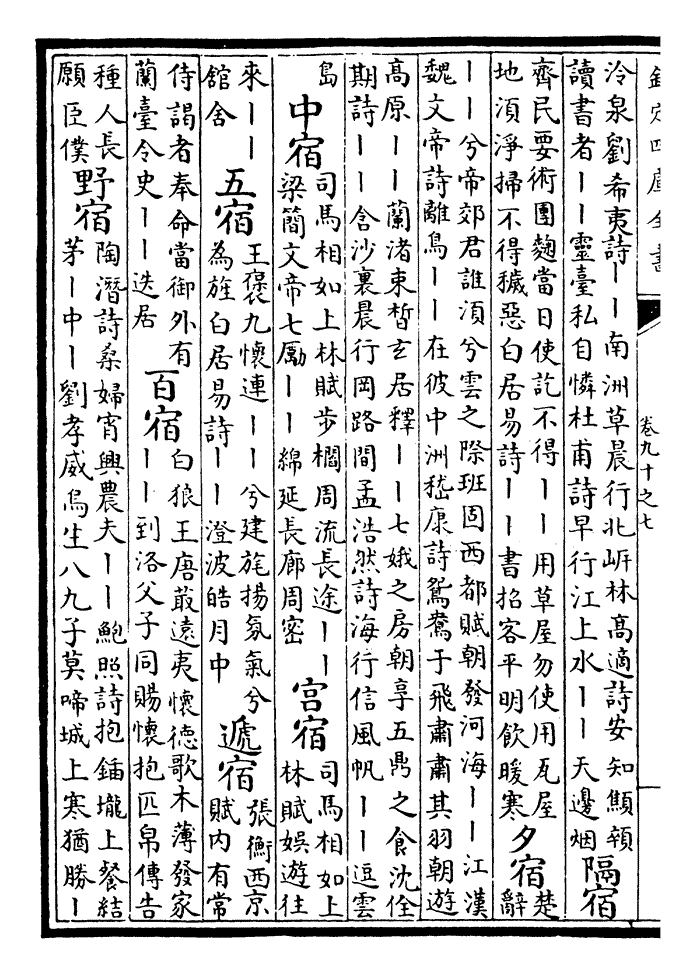 欽定四庫全書
卷九十之七
冷泉劉希夷詩｜｜南洲草晨行北㟁林高適詩安知顦顇
讀書者｜｜靈臺私自憐杜甫詩早行江上水｜｜天邊烟
隔宿
齊民要術團麴當日使訖不得｜｜用草屋勿使用瓦屋
地須淨掃不得穢惡白居易詩｜｜書招客平明飲暖寒
夕宿
楚
辭
｜｜兮帝郊君誰須兮雲之際班固西都賦朝發河海｜｜江漢
魏文帝詩離鳥｜｜在彼中洲嵇康詩鴛鴦于飛肅肅其羽朝遊
高原｜｜蘭渚束晳玄居釋｜｜七娥之房朝享五鼎之食沈佺
期詩｜｜含沙裏晨行岡路間孟浩然詩海行信風帆｜｜逗雲
島
中宿
司馬相如上林賦步櫩周流長途｜｜
梁簡文帝七勵｜｜綿延長廊周密
宮宿
司馬相如上
林賦娛遊往
來｜｜
舘舍
五宿
王褒九懷連｜｜兮建旄揚氛氣兮
為旌白居易詩｜｜澄波皓月中
遞宿
張衡西京
賦内有常
侍謁者奉命當御外有
蘭臺令史｜｜迭居
百宿
白狼王唐菆遠夷懷德歌木薄發家
｜｜到洛父子同賜懷抱匹帛傳告
種人長
願臣僕
野宿
陶潛詩桑婦宵興農夫｜｜鮑照詩抱鍤壠上餐結
茅｜中｜劉孝威烏生八九子莫啼城上寒猶勝｜